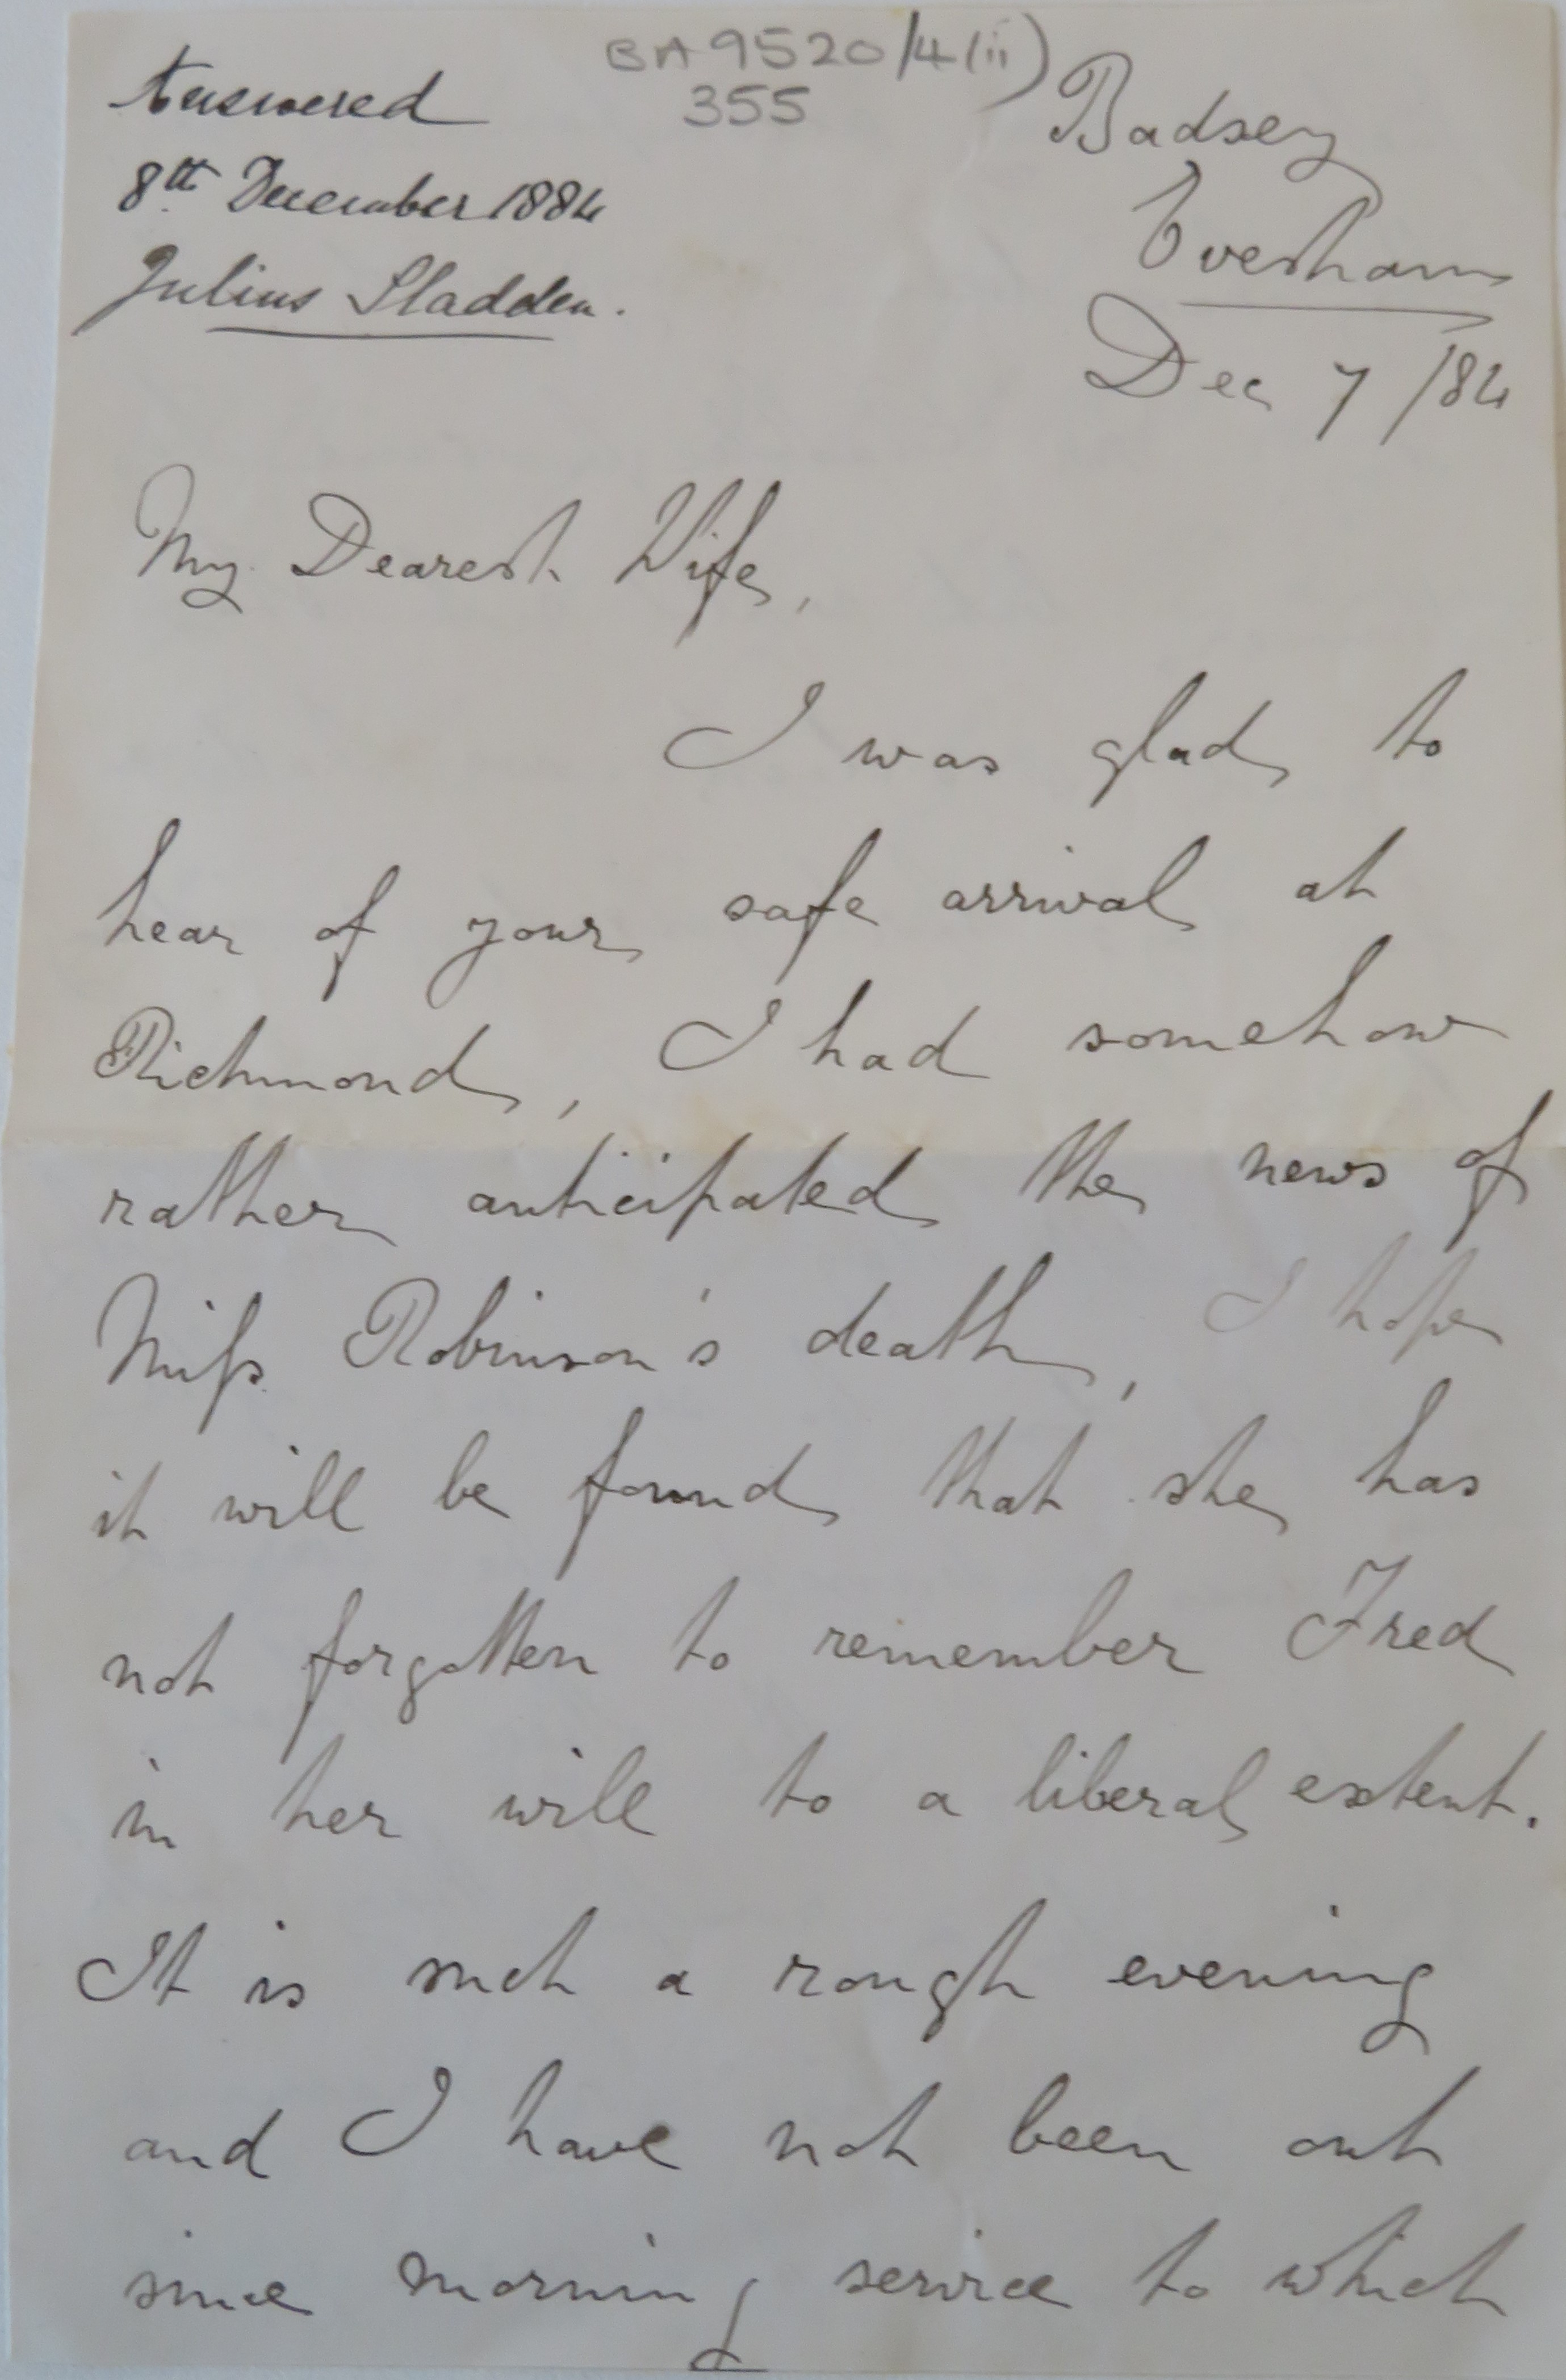 BA9520/4(ii)
355
Answered
8th December 1884
Julius Sladden.
Badsey
Evesham
Dec 7 /84
My Dearest Wife,
I was glad to
hear of your safe arrival at
Richmond, I had somehow
rather anticipated the news of
Miss Robinson's death, I hope
it will be found that she has
not forgotten to remember Fred
in her will to a liberal extent.
It is such a rough evening
and I have not been out
since morning service to which